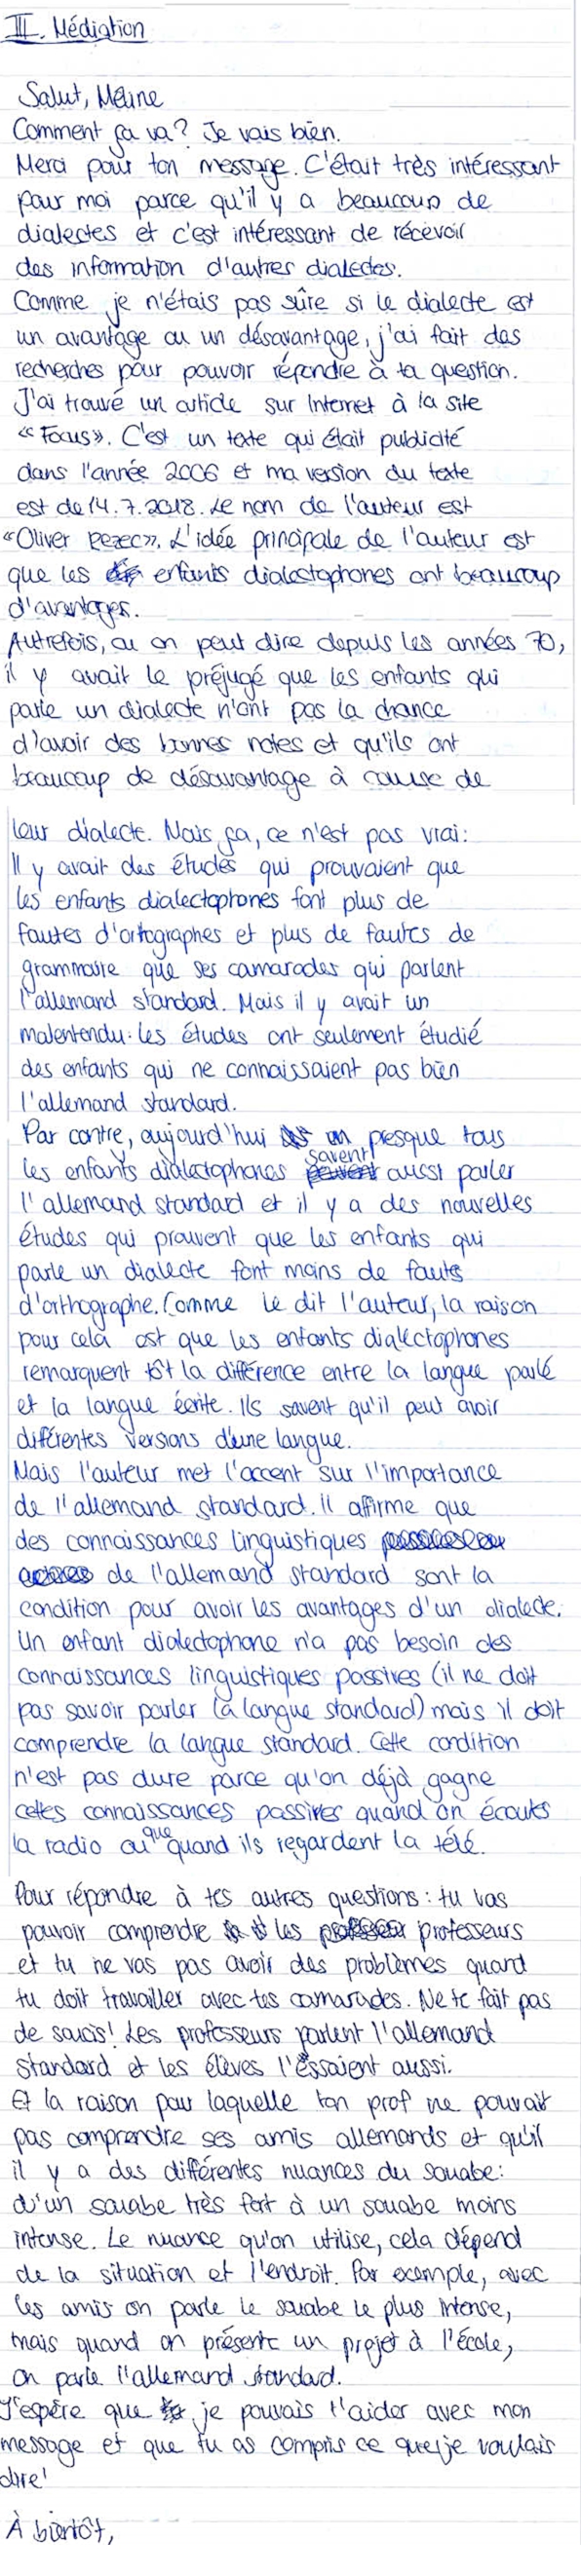 III. Médiation
Salut, Méline
Comment ça va? Je vais bien.
Merci pour ton message. C'était très intéressant
pour moi parce qu'il y a beaucoup de
dialectes et c'est intéressant de récevoir
des information d'autres dialectes.
Comme je n'étais pas sûre si le dialecte est
un avantage ou un désavantage, j'ai fait des
recherches pour pouvoir répondre à ta question.
J'ai trouvé un article sur Internet à la site
«Focus». C'est un texte qui était publicité
dans l'année 2006 et ma version du texte
est de 14.7.2018. Le nom de l'auteur est
«Oliver Rezec». L'idée principale de l'auteur est
que les enfants dialectophones ont beaucoup
d'avantages.
Autrefois, ou on peut dire depuis les années 70,
il y avait le préjugé que les enfants qui
parle un dialecte n'ont pas la chance
d'avoir des bonnes notes et qu'ils ont
beaucoup de désavantage à cause de
leur dialecte. Mais ça, ce n'est pas vrai:
Il y avait des études qui prouvaient que
les enfants dialectophones font plus de
fautes d'ortographes et plus de fautes de
grammaire que ses camarades qui parlent
l'allemand standard. Mais il y avait un
malentendu: les études ont seulement étudié
des enfants qui ne connaissaient pas bien
l'allemand standard.
Par contre, aujourd'hui presque tous
les enfants dialectophones savent aussi parler
l'allemand standard et il y a des nouvelles
études qui prouvent que les enfants qui
parle un dialecte font moins de fauts
d'orthographe. Comme le dit l'auteur, la raison
pour cela est que les enfants dialectophones
remarquent tôt la différence entre la langue parlé
et la langue écrite. Ils savent qu'il peut avoir
différentes versions d'une langue.
Mais l'auteur met l'accent sur l'importance
de l'allemand standard. Il affirme que
des connaissances linguistiques
de l'allemand standard sont la
condition pour avoir les avantages d'un dialecte.
Un enfant dialectophone n'a pas besoin des
connaissances linguistiques passives (il ne doit
pas savoir parler la langue standard) mais il doit
comprendre la langue standard. Cette condition
n'est pas dure parce qu'on déjà gagne
cettes connaissances passives quand on écouts
la radio ou que quand ils regardent la télé.
Pour répondre à tes autres questions: tu vas
pouvoir comprendre les professeurs
et tu ne vas pas avoir des problèmes quand
tu doit travailler avec tes camarades. Ne te fait pas
de soucis! Les professeurs parlent l'allemand
standard et les élèves l'éssaient aussi.
Et la raison pour laquelle ton prof ne pouvait
pas comprendre ses amis allemands et qu'il
il y a des différentes nuances du souabe:
d'un souabe très fort à un souabe moins
intense. Le nuance qu'on utilise, cela dépend
de la situation et l'endroit. Par exemple, avec
les amis on parle le souabe le plus intense,
mais quand on présente un projet à l'école,
on parle l'allemand standard.
J'espère que je pouvais t'aider avec mon
message et que tu as compris ce que je voulais
dire!
À bientôt,